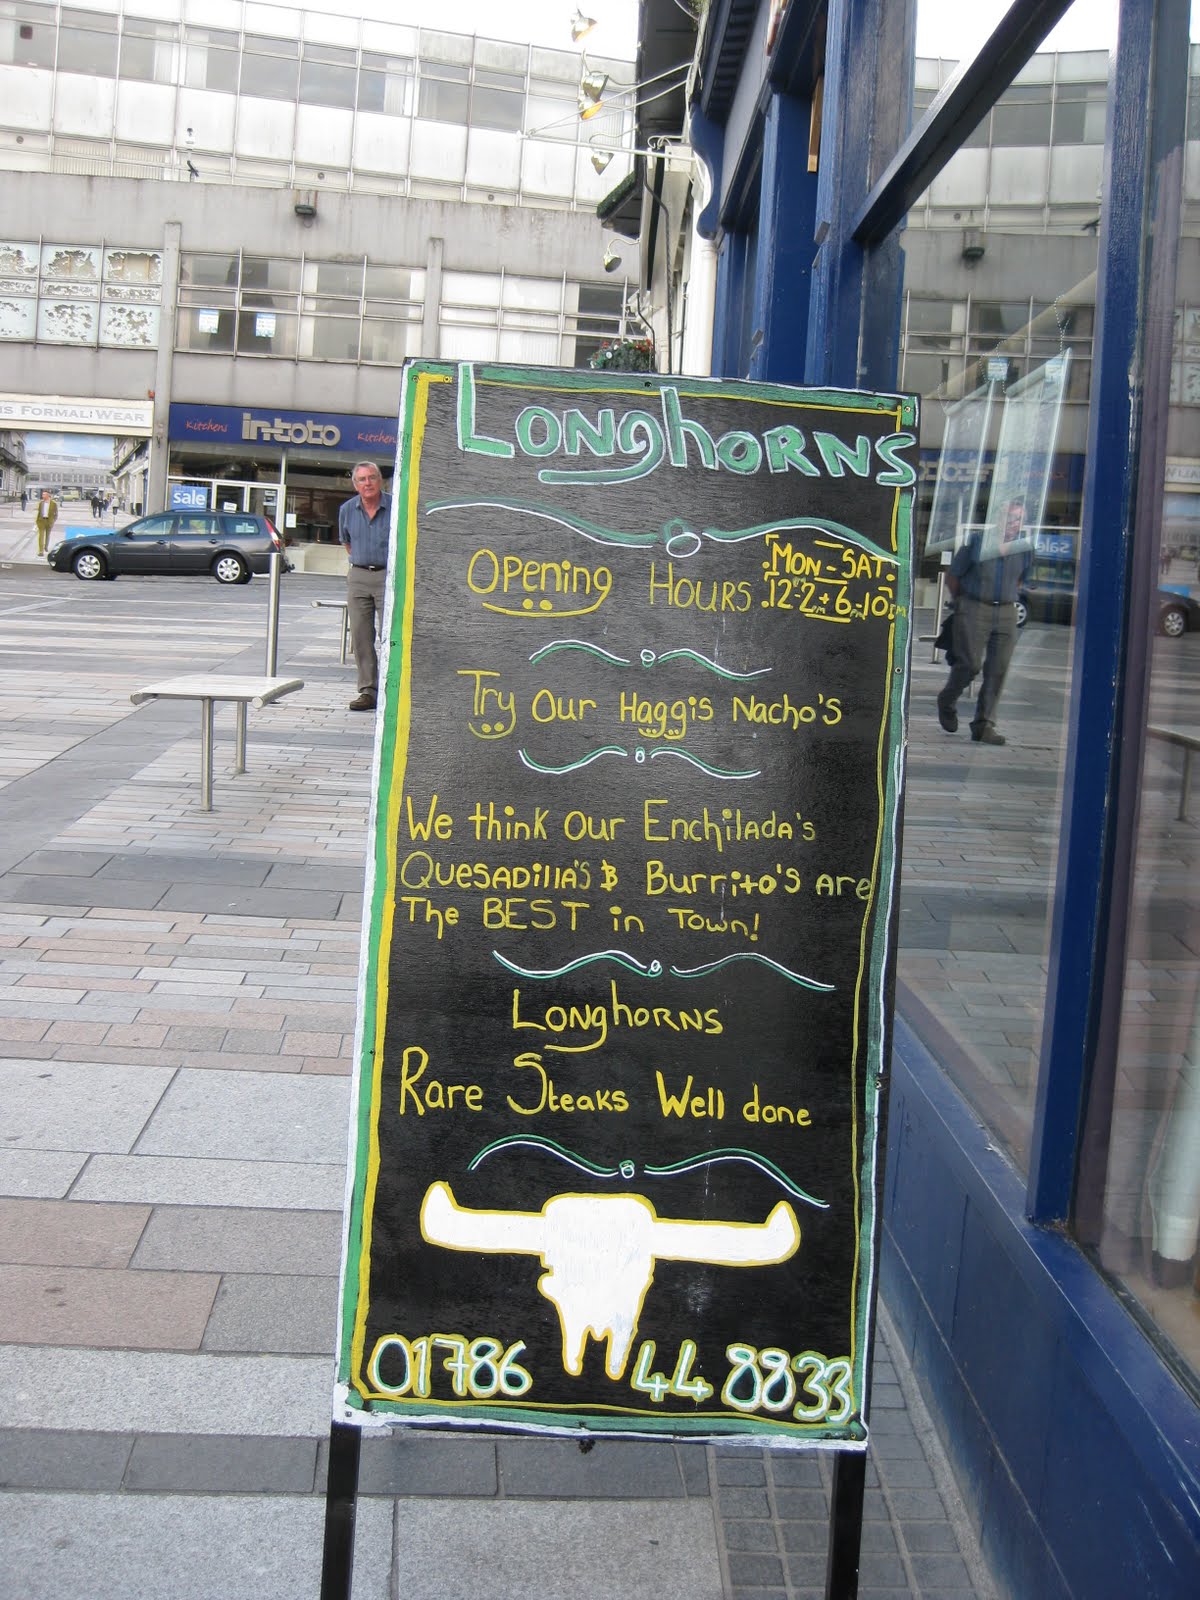 IS FORMAL WEAR
Kitchens in-toto Kitchens
sale
LONGHORNS
OPENING HOURS MON-SAT
12-2PM + 6PM-10PM
Try Our Haggis Nacho's
We think Our Enchilada's
Quesadilla's & Burrito's Are
The BEST in Town!
LONGHORNS
Rare Steaks Well done
01786 44 8833